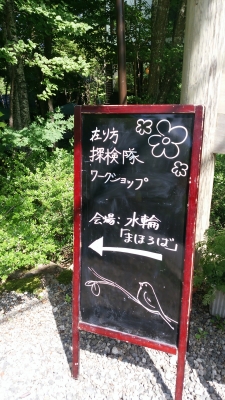 在り方
探検隊
ワークショップ
会場:水輪
「まほろば」